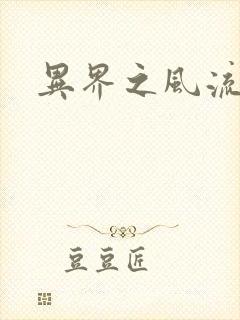 異界之風流
豆豆匠